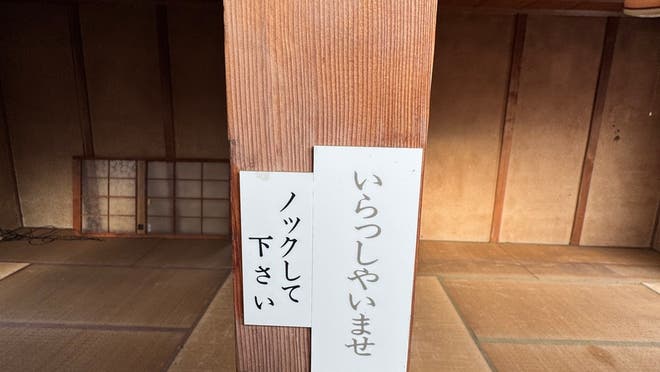 いらつしやいませ
ノックして
下さい